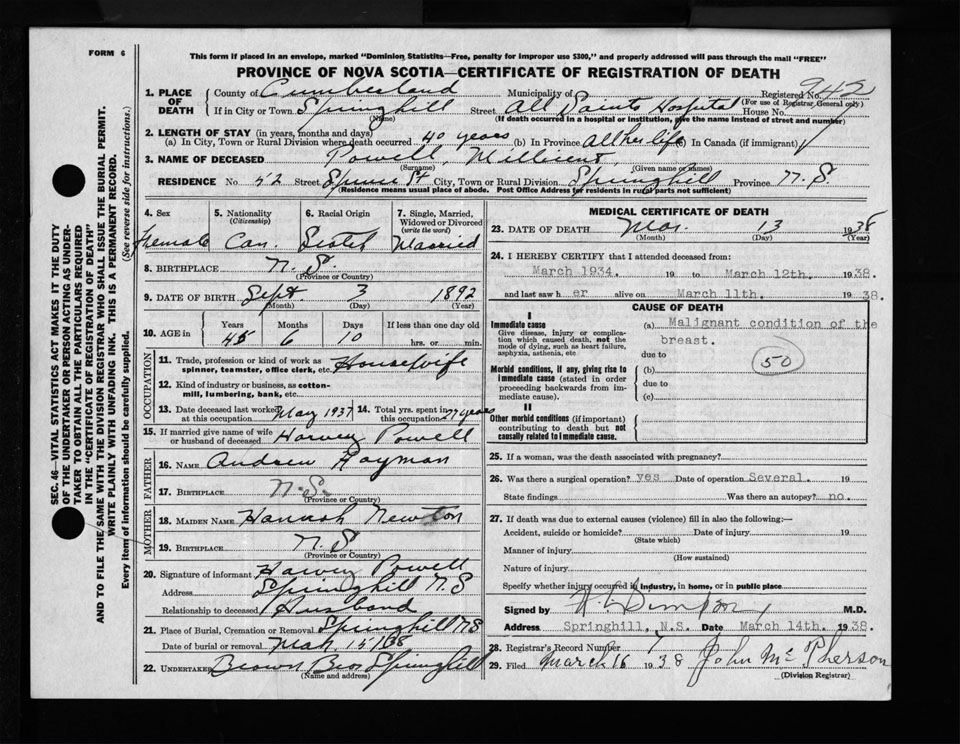 FORM 6
This form if placed in an envelope, marked "Dominion Statistits—Free, penalty for improper use $300," and properly addressed will pass through the mail "FREE"
PROVINCE OF NOVA SCOTIA—CERTIFICATE OF REGISTRATION OF DEATH
1. PLACE OF DEATH County of Cumberland Municipality of Registered No. 242
(For use of Registrar General only)
If in City or Town Springhill Street All Saints Hospital House No.
(Name) (If death occurred in a hospital or institution, give the name instead of street and number)
2. LENGTH OF STAY (in years, months and days)
(a) In City, Town or Rural Division where death occurred 40 years (b) In Province All her life (c) In Canada (if immigrant)
3. NAME OF DECEASED Powell, Millicent
(Surname) (Given name or names)
RESIDENCE No. 52 Street Spruce St City, Town or Rural Division Springhill Province N. S.
(Residence means usual place of abode. Post Office Address for residents in rural parts not sufficient)
4. Sex 5. Nationality (Citizenship) 6. Racial Origin 7. Single, Married, Widowed or Divorced (write the word)
Female Can. Scotch Married
8. BIRTHPLACE N. S.
(Province or Country)
9. DATE OF BIRTH Sept. 3 1892
(Month) (Day) (Year)
10. AGE in Years Months Days If less than one day old
45 6 10 hrs. or min.
OCCUPATION
11. Trade, profession or kind of work as spinner, teamster, office clerk, etc. Housewife
12. Kind of industry or business, as cotton-mill, lumbering, bank, etc.
13. Date deceased last worked at this occupation May 1937 14. Total yrs. spent in this occupation 27 years
15. If married give name of wife or husband of deceased Harvey Powell
FATHER
16. NAME Andrew Rayman
17. BIRTHPLACE N. S.
(Province or Country)
MOTHER
18. MAIDEN NAME Hannah Newton
19. BIRTHPLACE N. S.
(Province or Country)
20. Signature of informant Harvey Powell
Address Springhill N. S
Relationship to deceased Husband
21. Place of Burial, Cremation or Removal Springhill NS
Date of burial or removal Mar 15/38
22. UNDERTAKER Brown Bros Springhill
(Name and address)
MEDICAL CERTIFICATE OF DEATH
23. DATE OF DEATH Mar. 13 1938
(Month) (Day) (Year)
24. I HEREBY CERTIFY that I attended deceased from:
March 1934. 19 to March 12th. 1938.
and last saw her alive on March 11th. 1938.
CAUSE OF DEATH
I
Immediate cause
Give disease, injury or complication which caused death, not the mode of dying, such as heart failure, asphyxia, asthenia, etc
(a) Malignant condition of the breast.
due to
Morbid conditions, if any, giving rise to immediate cause (stated in order proceeding backwards from immediate cause).
(b)
due to
(c)
50
II
Other morbid conditions (if important) contributing to death but not causally related to immediate cause.
25. If a woman, was the death associated with pregnancy?
26. Was there a surgical operation? yes Date of operation Several. 19
State findings Was there an autopsy? no.
27. If death was due to external causes (violence) fill in also the following:—
Accident, suicide or homicide? Date of injury 19
(State which)
Manner of injury
(How sustained)
Nature of injury
Specify whether injury occurred in industry, in home, or in public place
Signed by M.D.
Address Springhill, N.S. Date March 14th. 1938.
28. Registrar's Record Number 7
29. Filed March 16 1938 John McPherson
(Division Registrar)
SEC. 46—VITAL STATISTICS ACT MAKES IT THE DUTY
OF THE UNDERTAKER OR PERSON ACTING AS UNDER-
TAKER TO OBTAIN ALL THE PARTICULARS REQUIRED
IN THE "CERTIFICATE OF REGISTRATION OF DEATH"
AND TO FILE THE SAME WITH THE DIVISION REGISTRAR WHO SHALL ISSUE THE BURIAL PERMIT.
WRITE PLAINLY WITH UNFADING INK. THIS IS A PERMANENT RECORD.
Every item of information should be carefully supplied. (See reverse side for instructions.)